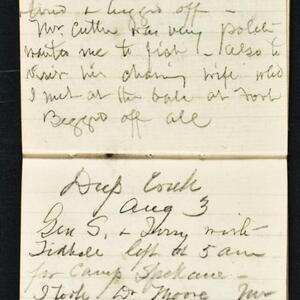 & begged off -
Mr. Cutter was very polite
wanted me to fish - also to
visit his charming wife who
I met at the ball at Fort
Begged off all
Deep Creek
Aug 3
Gen S. & Terry with
Tidball left at 5 am
for Camp Spokane -
I took Dr Moore